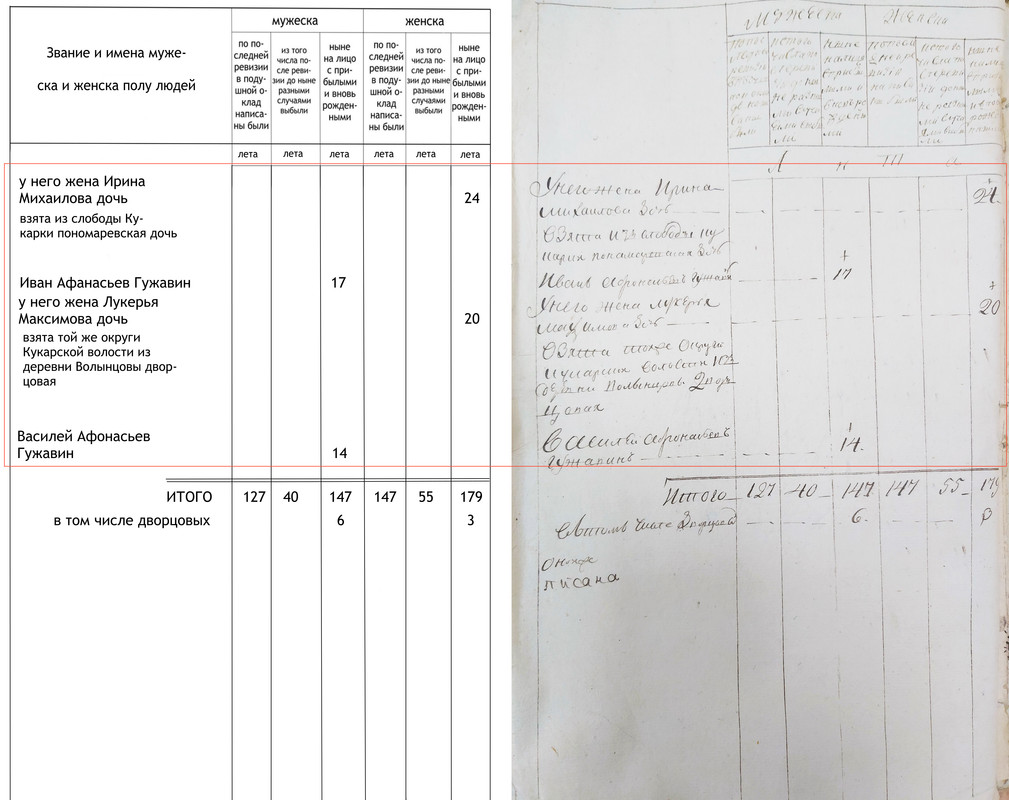 мужеска
женска
Звание и имена муже-
ска и женска полу людей
по по-
следней
ревизии
в поду-
шной о-
клад
написа-
ны были
из того
числа по-
сле реви-
зии до ныне
разными
случаями
выбыли
ныне
на лицо
с при-
былыми
и вновь
рожден-
ными
по по-
следней
ревизии
в поду-
шной о-
клад
написа-
ны были
из того
числа по-
сле реви-
зии до ныне
разными
случаями
выбыли
ныне
на лицо
с при-
былыми
и вновь
рожден-
ными
лета лета лета лета лета лета
у него жена Ирина
Михаилова дочь 24
взята из слободы Ку-
карки пономаревская дочь
Иван Афанасьев Гужавин 17
у него жена Лукерья
Максимова дочь 20
взята той же округи
Кукарской волости из
деревни Волынцовы двор-
цовая
Василей Афонасьев
Гужавин 14
ИТОГО 127 40 147 147 55 179
в том числе дворцовых 6 3
Мужеска Женска
Л е т а
У него жена Ирина
Михаилова 24
взята из слободы ку
карки
Иванъ Афонасьевъ Гужавин 17
У него жена лукерья
20
взята тоже округи
Василей Афонасьевъ
гужавинъ 14.
Итого 127 40 147 147 55 179
в томъ числе 6. 3
писана